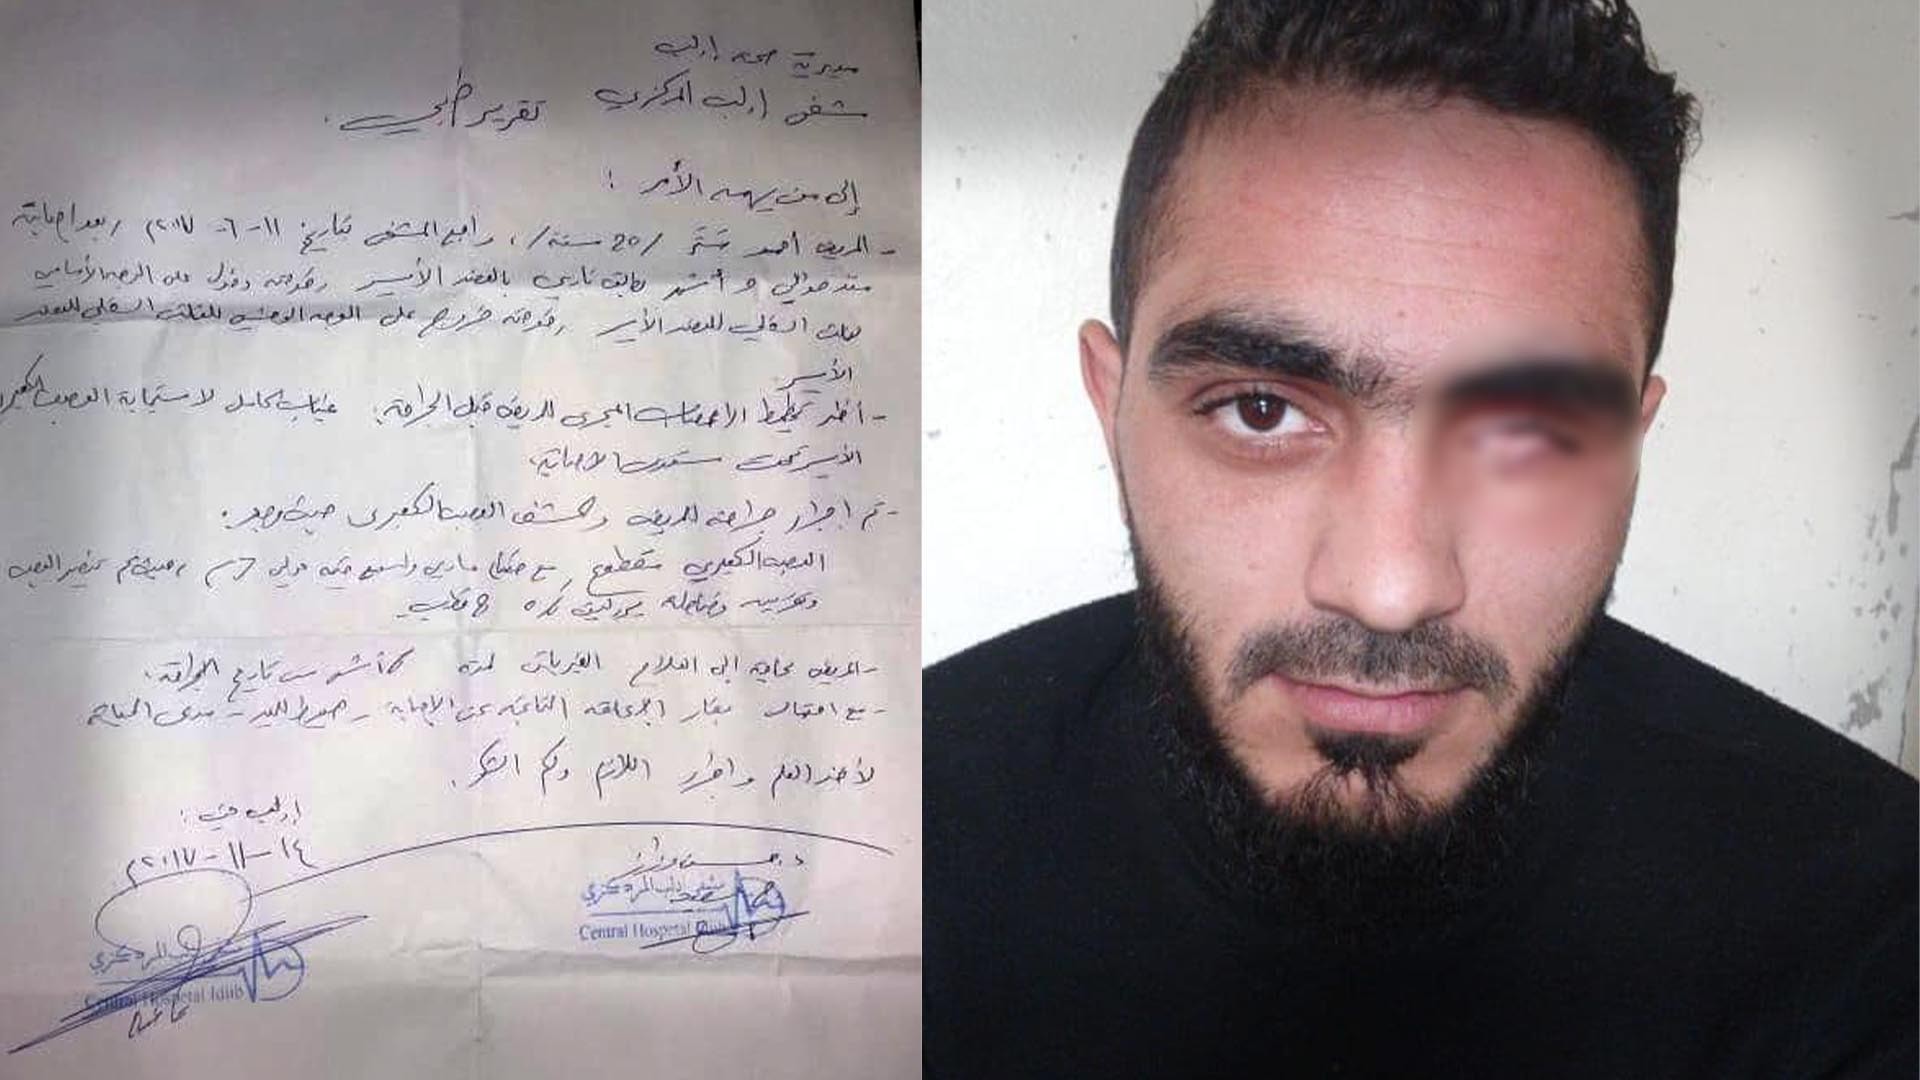 مديرية صحة إدلب
مشفى إدلب المركزي تقرير طبي.
إلى من يهمه الأمر :
- المريض أحمد /25 سنة/، راجع المشفى بتاريخ ١١-٦-٢٠١٧م بعد إصابة
منذ حوالي أشهر بطلق ناري بالعضد الأيسر وفوهة دخول على الوجه الأمامي
السفلي للعضد الأيسر وفوهة خروج على الوجه الوحشي للثلث السفلي للعضد
الأيسر
- أظهر تخطيط الأعصاب المجرى للمريض قبل الجراحة: غياب كامل لاستجابة العصب الكعبري
الأيسر تحت مستوى الإصابة.
- تم إجراء جراحة للمريض وكشف العصب الكعبري حيث وجد:
العصب الكعبري متقطع مع ضياع مادي واسع حوالي 7سم، حيث تم تحضير العصب
8 قطب
- المريض بحاجة إلى العلاج الفيزيائي لمدة أشهر من تاريخ الجراحة.
- مع احتمال بقاء الإعاقة الناتجة عن الإصابة - هبوط اليد - مدى الحياة
لأخذ العلم وإجراء اللازم ولكم الشكر.
إدلب في:
١٤-١١-٢٠١٧م
د. حسن
مشفى إدلب المركزي
Central Hospetal Idlib
إدلب المركزي
Central Hospetal Idlib